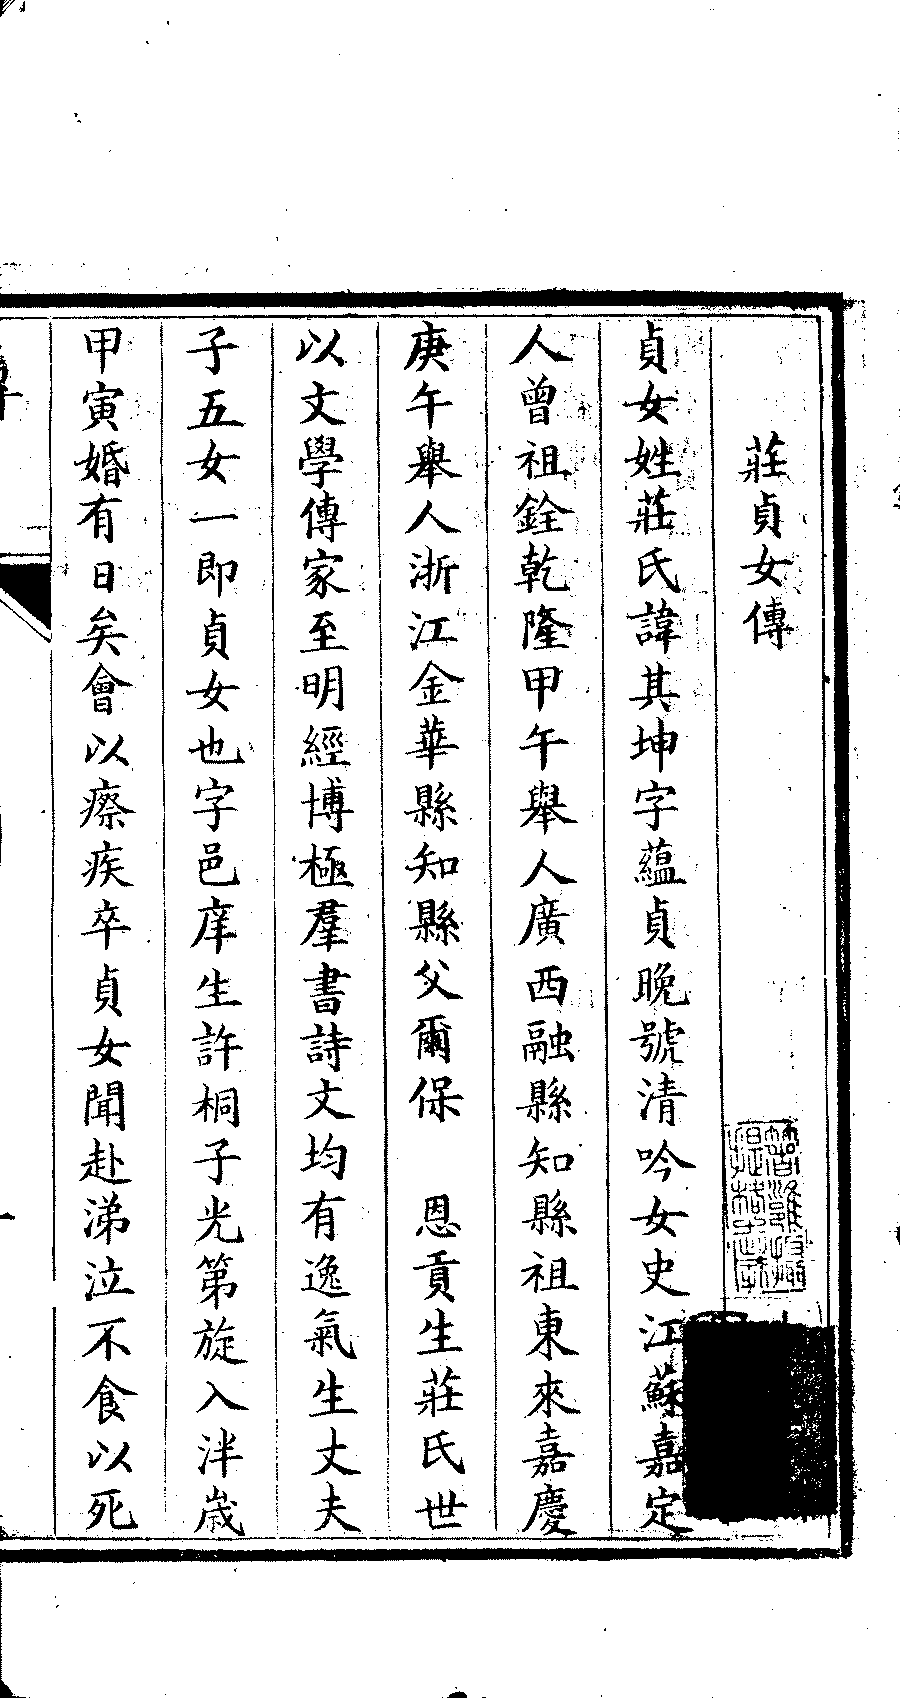 莊貞女傳
貞女姓莊氏諱其坤字蘊貞晚號清吟女史江蘇嘉定
人曾祖銓乾隆甲午舉人廣西融縣知縣祖東來嘉慶
庚午舉人浙江金華縣知縣父爾保　恩貢生莊氏世
以文學傳家至明經博極羣書詩文均有逸氣生丈夫
子五女一即貞女也字邑庠生許桐子光第旋入泮歲
甲寅婚有日矣會以瘵疾卒貞女聞赴涕泣不食以死